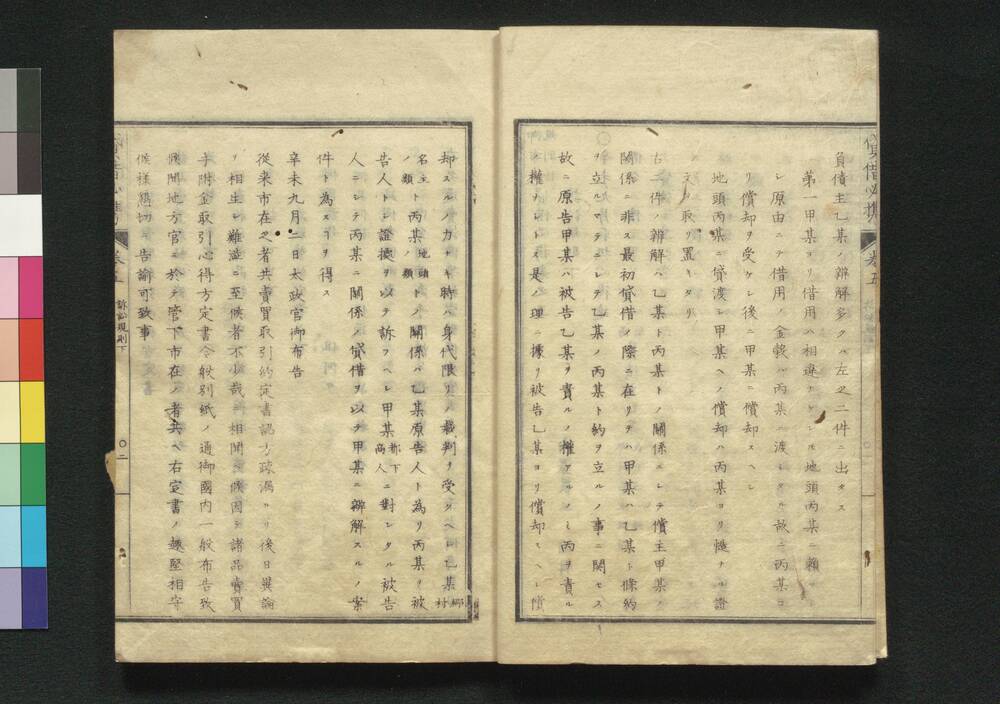 負債主乙某ノ辨解多クハ左之二件ニ出タス
第一甲某ヨリ借用ハ相違ナシレ𪜈地頭丙某ニ頼マ
レ原由ニテ借用ノ金穀ハ丙某ニ渡シタル故ニ丙某ヨ
リ償却ヲ受ケレ後ニ甲某ニ償却スヘレ
地頭丙某ニ貸渡シ甲某ヘノ償却ハ丙某ヨリ慥ナル證
文ヲ取リ置キタリ
右二件ノ辨解ハ乙某ト丙某トノ關係ニレテ債主甲某ノ
關係ニ非ス最初貸借ノ際ニ在リテハ甲某ハ乙某ト條約
ヲ立ルマテニレテ乙某ノ丙某ト約ヲ立ルノ事ニ関セス
故ニ原告甲某ハ被告乙某ヲ責ルノ權アルノミ丙ヲ責ル
ノ權ナレトス是ノ理ニ據リ被告乙某ヨリ償却セヘレ償
却スルノ力ナキ時ハ身代限リノ裁判ヲ受クヘレ乙某 郷村
名主ノ類 ト丙某 地頭ノ類 ノ關係ハ乙某原告人ト為リ丙某ヲ被
告人トレ證據ヲ以テ訴フヘレ甲某 都下商人 ニ對シタル被告
人ニシテ丙某ニ關係ノ貸借ヲ以テ甲某ニ辨解スルノ案
件ト為スヿヲ得ス
辛未九月二日太政官御布告
從来市在之者共賣買取引約定書認方疎漏ヨリ後日異論
ヲ相生シ難澁ニ至候者不少哉ニ相聞ヘ候因テ諸品賣買
手附金取引心得方定書今般別紙ノ通御國内一般布告致
候間地方官ニ於テ管下市在ノ者共ヘ右定書ノ趣堅相守
候様懇切ニ告諭可致事
訴訟規則下
〇二